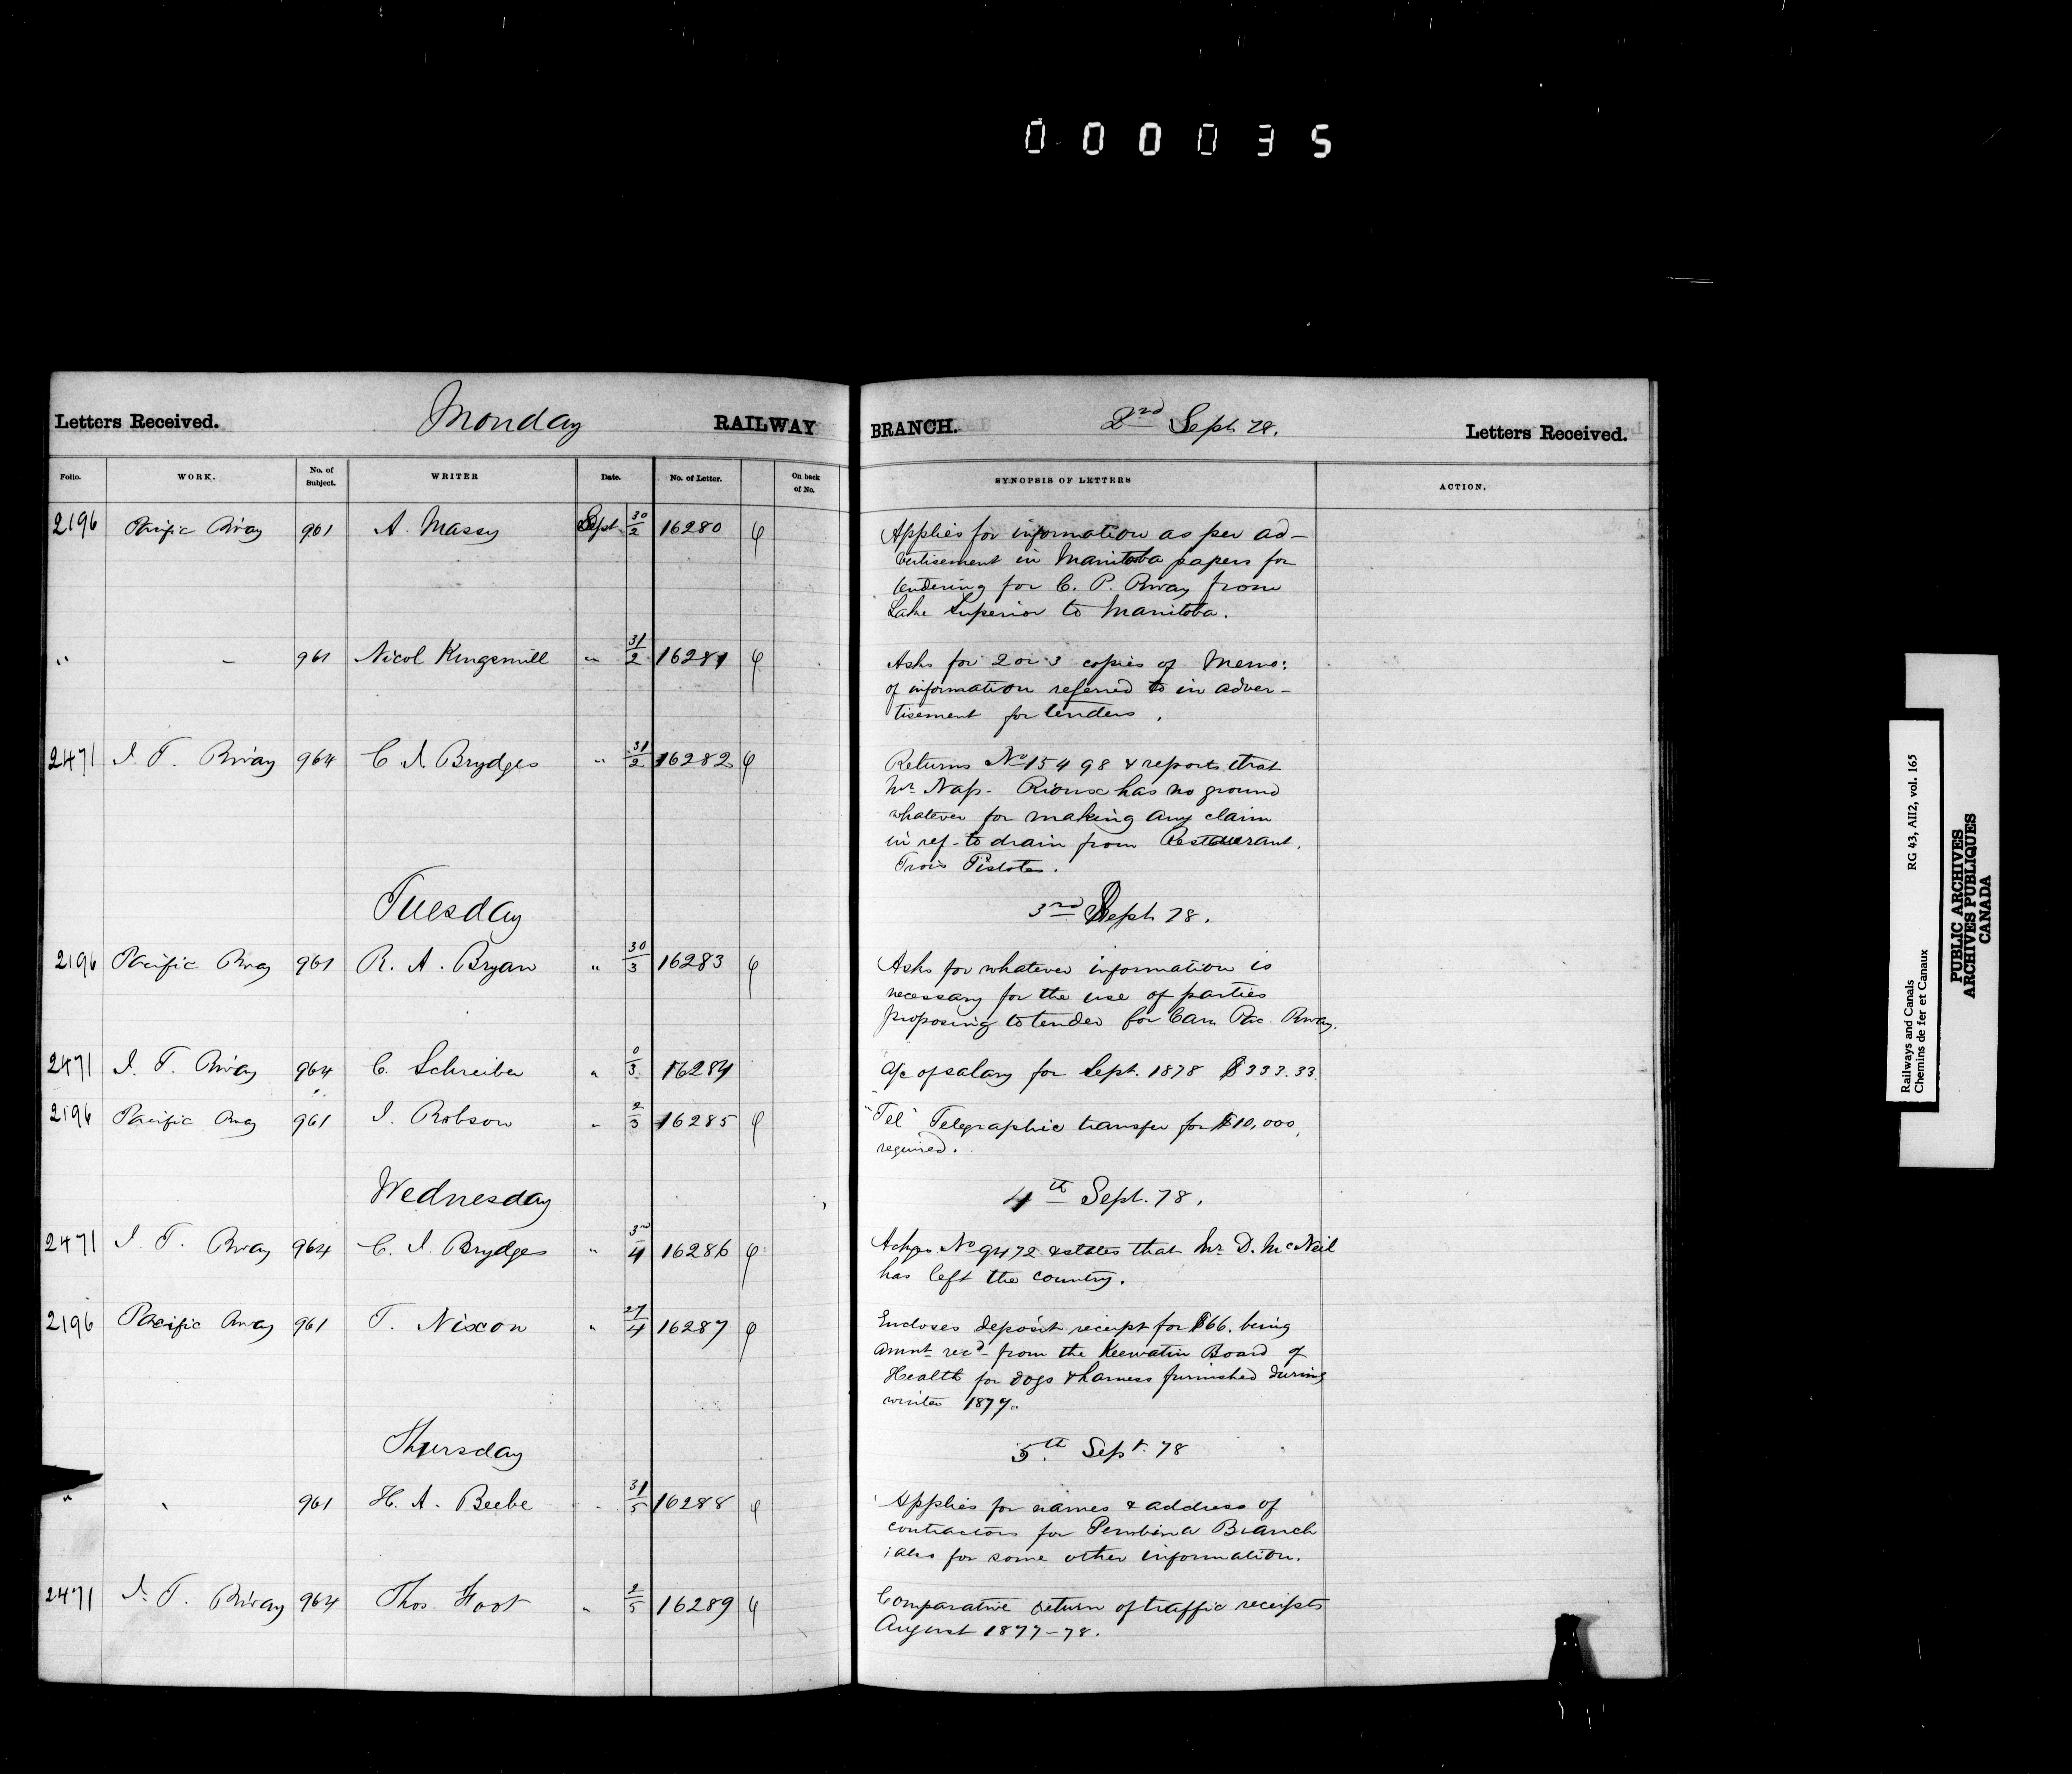 000035
Letters Received. Monday RAILWAY BRANCH. 2nd Sept 78. Letters Received.
Folio. WORK. No. of Subject. WRITER Date. No. of Letter. On back of No. SYNOPSIS OF LETTERS ACTION.
2196 Pacific R'way 961 A. Massy Sept 30/2 16280 φ Applies for information as per ad-
vertisement in Manitoba papers for
tendering for C. P. Rway from
Lake Superior to Manitoba.
" – 961 Nicol Kingsmill " 31/2 16281 φ Asks for 2 or 3 copies of Memo:
of information referred to in adver-
tisement for tenders.
2471 I. T. Rway 964 C J Brydges " 31/2 16282 φ Returns No 15498 & reports that
Mr. Nap. Rioux has no ground
whatever for making any claim
in ref. to drain from Restaurant,
Trois Pistoles.
Tuesday 3rd Sept 78.
2196 Pacific Rway 961 R. A. Bryan " 30/3 16283 φ Asks for whatever information is
necessary for the use of parties
proposing to tender for Can. Pac. Rway.
2471 I. T. R'way 964 C. Schreiber " 0/3 16284 a/c of salary for Sept. 1878 $333.33.
2196 Pacific Rway 961 J. Robson " 2/3 16285 φ "Tel" Telegraphic transfer for $10,000,
required.
Wednesday 4th Sept. 78.
2471 I. T. Rway 964 C. J. Brydges " 3rd/4 16286 φ Ackges. No 9472 & states that Mr. D. McNeil
has left the country.
2196 Pacific Rway 961 T. Nixon " 27/4 16287 φ Encloses deposit receipt for $66. being
amnt. rec'd from the Keewatin Board of
Health for dogs & harness furnished during
winter 1877.
Thursday 5th Sept. 78
" " 961 H. A. Beebe " 31/5 16288 φ Applies for names & address of
contractors for Pembina Branch
; also for some other information.
2471 I. T. R'way 964 Thos. Foot " 2/5 16289 φ Comparative return of traffic receipts
August 1877-78.
Railways and Canals RG 43, AII2, vol. 165
Chemins de fer et Canaux
PUBLIC ARCHIVES
ARCHIVES PUBLIQUES
CANADA